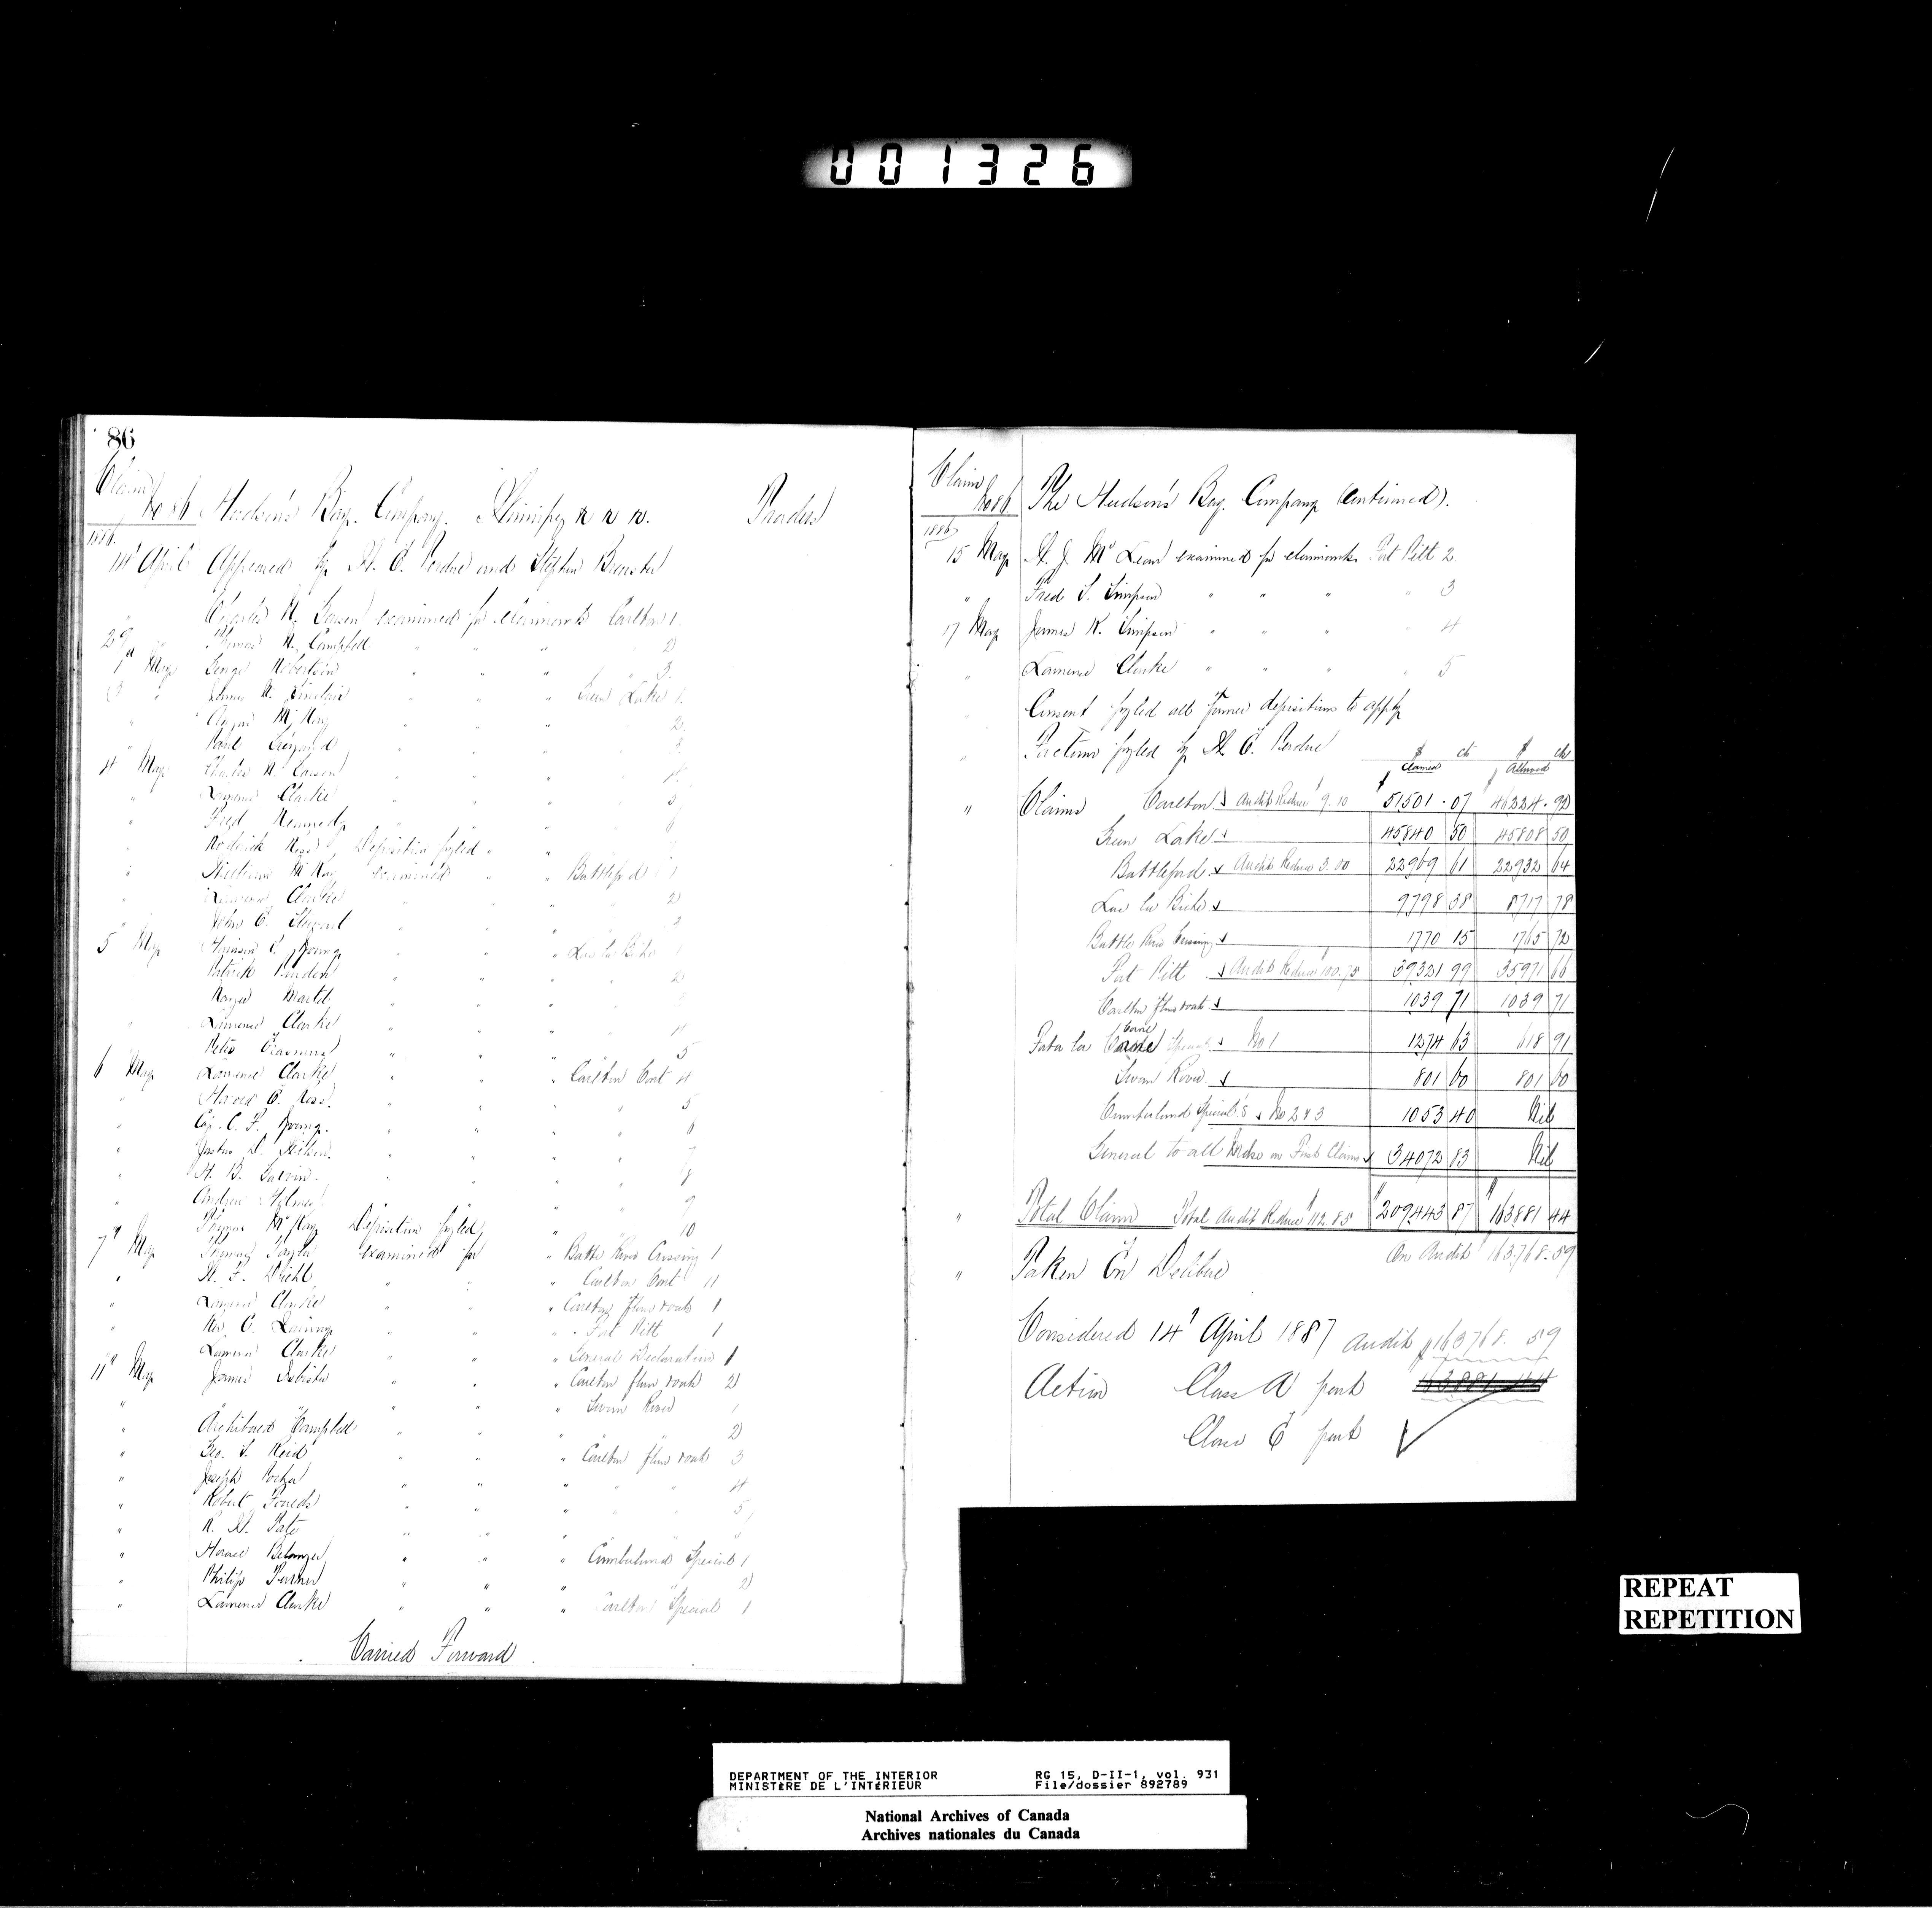 001326
86
Claim
No 86 Hudson's Bay Company. Winnipeg Traders
1886
April Appeared by H. C. Perdue and Stephen Brewster
Charles N. Garson examined for claimants Carlton 1
29 Thomas N. Campbell " " " " 2
1st May George Robertson " " " " 3
3 " James N. Sinclair " " " Green Lake 1
" Angus McKay " " " " 2
" Paul " " " " 3
4 May Charles N. Garson " " " " 4
" Lawrence Clarke " " " " 5
" Fred Kennedy " " " " 6
" Roderick Ross Deposition fyled " " " 7
" William McKay examined " " Battleford 1
" Lawrence Clarke " " " " 2
" John C. " " " " 3
5 May Harrison C. Young " " " Lac la Biche 1
" Patrick " " " " 2
" " " " " 3
" Lawrence Clarke " " " " 4
" Peter Erasmus " " " " 5
6 May Lawrence Clarke " " " Carlton Cont 4
" Harold E. Ross " " " " 5
" Cap. C. F. Young " " " " 6
" Justus D. Willson " " " " 7
" H. B. " " " " 8
" Andrew Holmes " " " " 9
" Thomas McKay Deposition fyled " " 10
7th May Thomas Taylor examined for " Battle River Crossing 1
" H. F. Diehl " " " Carlton Cont 11
" Lawrence Clarke " " " Carlton flour route 1
" Rev. C. Quinney " " " Fort Pitt 1
" Lawrence Clarke " " " General Declaration 1
11th May James Isbister " " " Carlton flour route 2
" " " " " Swan River 1
" Archibald Campbell " " " " 2
" Geo. S. Reid " " " Carlton flour route 3
" Joseph " " " " " 4
" Robert Foulds " " " " " 5
" R. H. Tate " " " "
" Horace Belanger " " " Cumberland Special 1
" Philip Turner " " " " 2
" Lawrence Clarke " " " Carlton Special 1
Carried Forward
Claim
No 86 The Hudson's Bay Company (Continued).
1886
15 May W. J. McLean examined for claimants Fort Pitt 2
" Fred S. Simpson " " " " 3
17 May James K. Simpson " " " " 4
" Lawrence Clarke " " " " 5
" Consent fyled all former depositions to apply
" Factum fyled by H. C. Perdue
$ Claimed cts $ Allowed cts
" Claims Carlton Audit Reduce $9.10 $51501.07 $46224.92
Green Lake 45840 50 45808 50
Battleford Audit Reduce 3.00 22969 61 22932 64
Lac la Biche 9798 38 8717 78
Battle River Crossing 1770 15 1765 72
Fort Pitt Audit Reduce $100.75 39321 99 35971 66
Carlton flour route 1039 71 1039 71
Fort a la Corne Corne Special No 1 1274 63 618 91
Swan River 801 60 801 60
Cumberland Special's No 2 & 3 1053 40 Nil
General to all Books on First Claims 34072 83 Nil
" Total Claim Total Audit Reduce $112.85 $209443 87 $163881 44
On Audit $163768.59
" Taken En Delibere
Considered 14th April 1887 Audit $163768.59
Action Class A part 163881.44
Class C part
REPEAT
REPETITION
DEPARTMENT OF THE INTERIOR RG 15, D-II-1, vol. 931
MINISTÈRE DE L'INTÉRIEUR File/dossier 892789
National Archives of Canada
Archives nationales du Canada